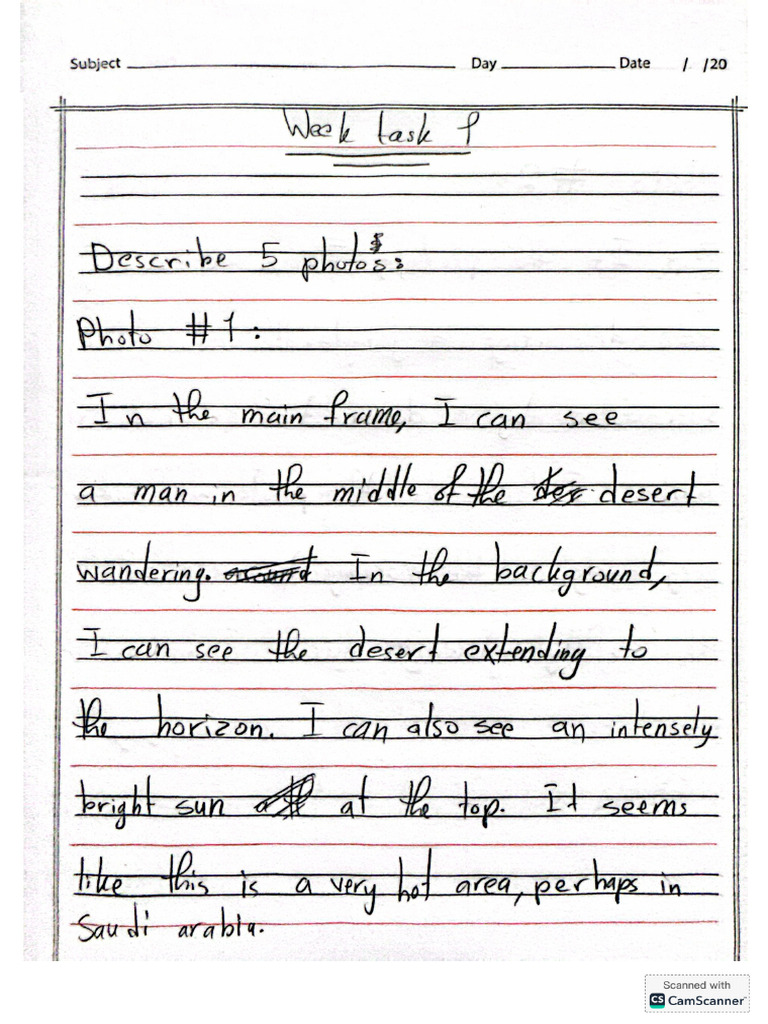 Subject Day Date / /20
Week task 1
Describe 5 photos:
Photo #1:
In the main frame, I can see
a man in the middle of the desert
wandering. In the background,
I can see the desert extending to
the horizon. I can also see an intensely
bright sun at the top. It seems
like this is a very hot area, perhaps in
Saudi arabia.
Scanned with
CS CamScanner